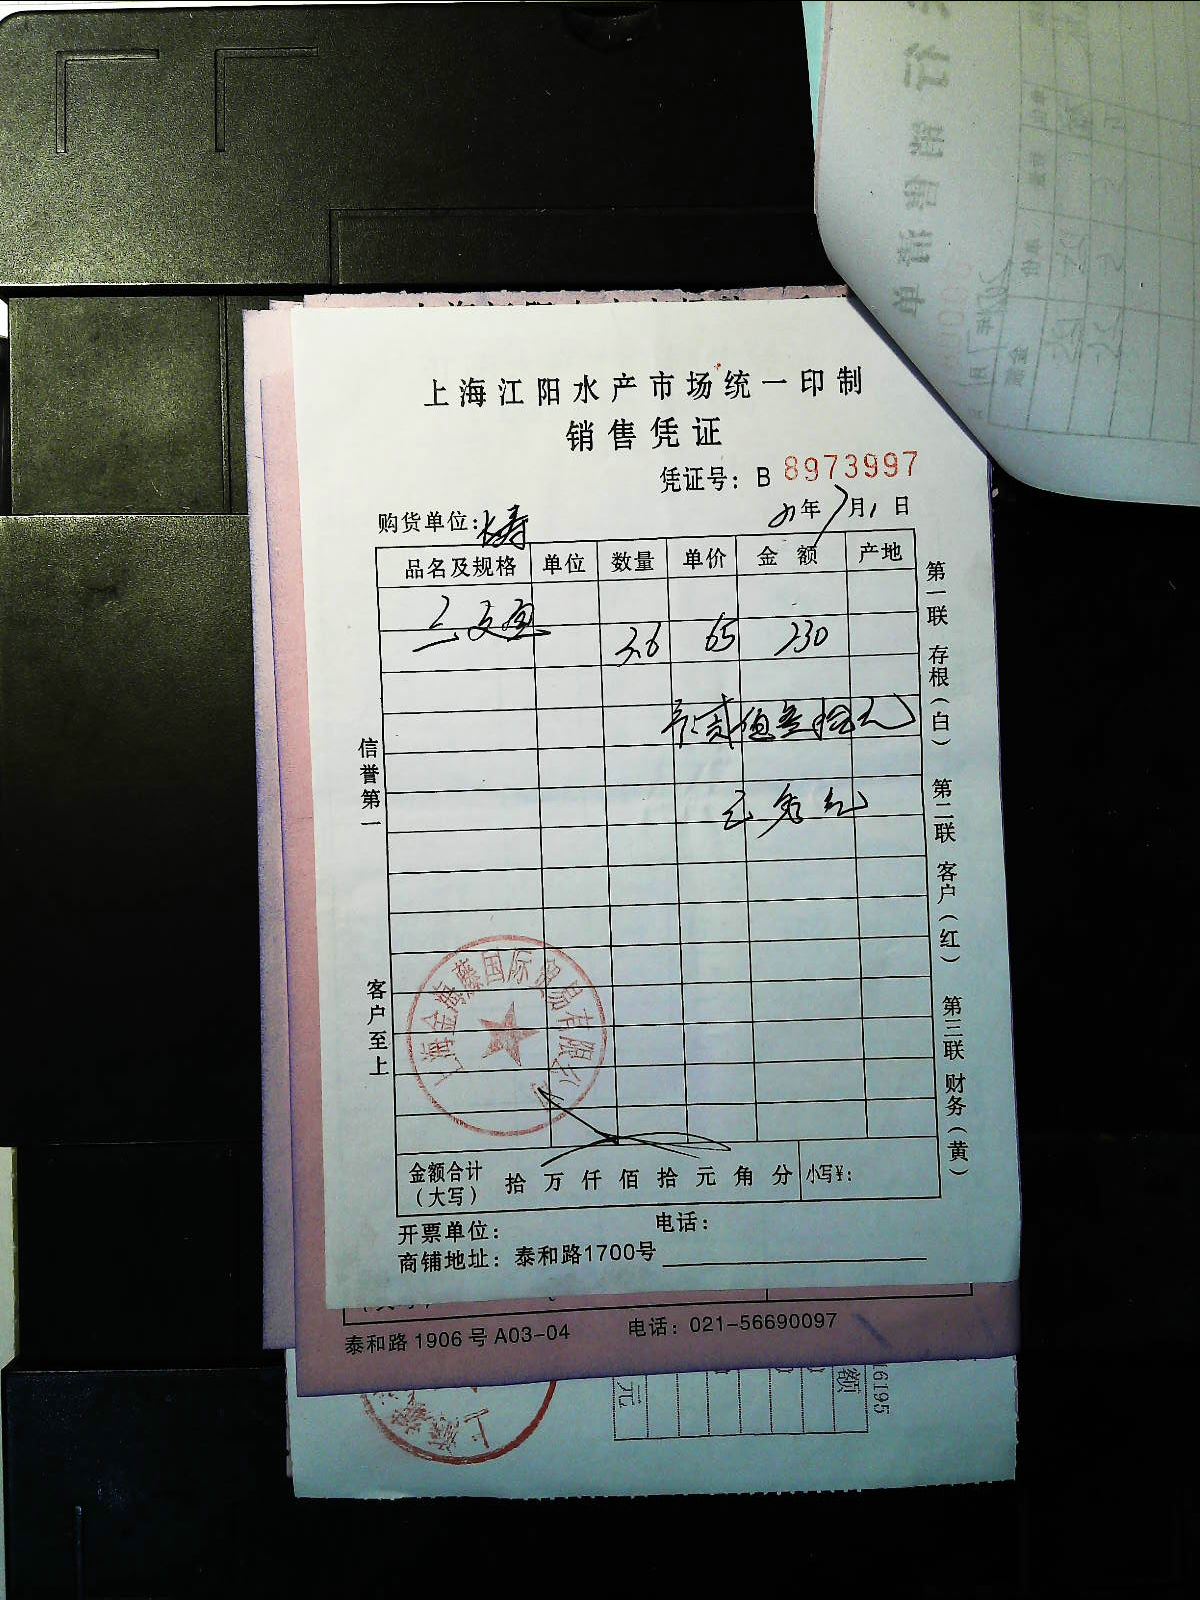 上海江阳水产市场统一印制
销售凭证
凭证号：B 8973997
购货单位：长寿
年7月1日
品名及规格 单位 数量 单价 金额 产地
三文鱼
3.6 65 230
贰佰叁拾元
信誉第一
客户至上
第一联 存根（白） 第二联 客户（红） 第三联 财务（黄）
上海金海藤国际贸易有限公司
金额合计（大写） 拾 万 仟 佰 拾 元 角 分 小写¥：
开票单位： 电话：
商铺地址：泰和路1700号
泰和路1906号A03-04 电话：021-56690097
额
元
16195